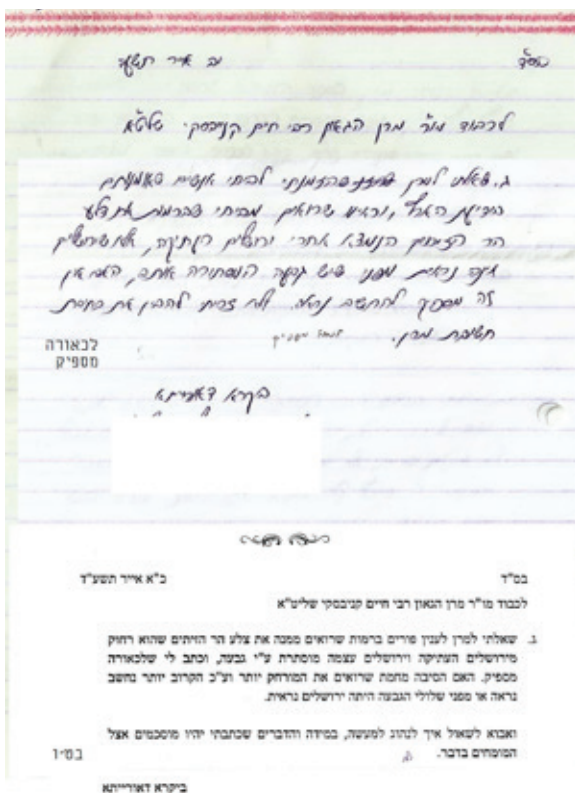 בס"ד
כב אייר תשע"ד
לכבוד מו"ר מרן הגאון רבי חיים קניבסקי שליט"א
ג. שאלתי למרן שהזמנתי לביתי אנשים
וראינו שרואים מביתי שברמות את צלע
הר הזיתים הנמצא אחרי ירושלים העתיקה, אלא שירושלים
אינה נראית מפני שיש גבעה המסתירה אותה, האם אין
זה מספיק להחשב נראה. ולא זכיתי להבין את
תשובת מרן.
לכאורה
מספיק
ביקרא דאורייתא
בס"ד
כ"א אייר תשע"ד
לכבוד מו"ר מרן הגאון רבי חיים קניבסקי שליט"א
ג. שאלתי למרן לענין פורים ברמות שרואים ממנה את צלע הר הזיתים שהוא רחוק
מירושלים העתיקה וירושלים עצמה מוסתרת ע"י גבעה, וכתב לי שלכאורה
מספיק. האם הסיבה מחמת שרואים את המורחק יותר וע"כ הקרוב יותר נחשב
נראה או מפני שלולי הגבעה היתה ירושלים נראית.
ואבוא לשאול איך לנהוג למעשה, במידה והדברים שכתבתי יהיו מוסכמים אצל
המומחים בדבר.
בט"ו
ביקרא דאורייתא